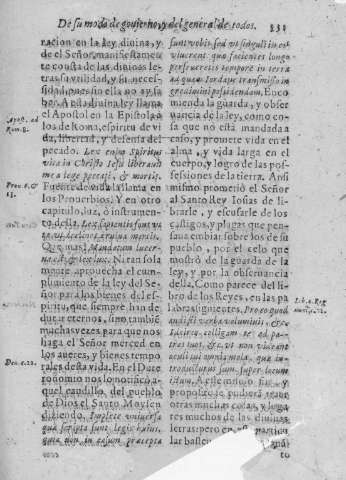 De su modo de gouierno, y del general de todos. 331
racion en la ley diuina, y
de el Señor, manifiestamen
te consta de las diuinas le
tras su vtilidad, y su necesi-
dad, pues sin ella no ay sa
ber. A esta diuina ley llama
el Apostol en la Epistola a
los de Roma, espiritu de vi
da, libertad, y defensa del
pecado. Lex enim Spiritus
vitæ in Christo Iesu liberauit
me à lege peccati, & mortis.
Fuente de vida la llama en
los Prouerbios. Y en otro
capitulo, luz, ò instrumen-
to della. Lex sapientis fons vi-
tæ vt declinet à ruina mortis.
Que mas? Mandatum lucer-
na est, & lex lux. Ni tan sola
mente aprouecha el cum-
plimiento de la ley del Se-
ñor para los bienes del es-
piritu, que siempre han de
durar eternos, sino tambiẽ
muchas vezes para que nos
haga el Señor merced en
los aueres, y bienes tempo
rales desta vida. En el Dute
ronomio nos lo notificò a-
quel caudillo, del pueblo
de Dios el Santo Moysen
diziendo. Implete vniuersa
quæ scripta sunt legis huius,
quia non in casum præcepta
Apost. ad
Rom. 8.
Prou. c. 6
13.
Deu. c. 32.
sunt vobis, sed vt singuli in eis
viuerent: quæ facientes longo
perseueretis tempore in terra
ad quam Iordane transmisso in
gredimini possidendam. Enco
mienda la guarda, y obser
uancia de la ley, como co-
sa que no està mandada a
caso, y promete vida en el
alma, y vida larga en el
cuerpo, y logro de las pos-
sessiones de la tierra. Ansi
mismo prometiò el Señor
al Santo Rey Iosias de li-
brarle, y escusarle de los
castigos, y plagas que pen-
saua embiar sobre los de su
pueblo, por el celo que
mostrò de la guarda de la
ley, y por la obseruancia
della. Como parece del li-
bro de los Reyes, en las pa
labras siguientes. Pro eo quod
audisti verba voluminis, &c.
Idcirco, colligam te ad pa-
tres tuos, &c. vt non videant
oculi tui omnia mala, quæ in-
troducturus sum super locum
istum. A este modo
propósito le pudiera traer
otras muchas cosas, y luga
res muchos de las diuinas
letras: pero en
lar basten
Lib. 4. Reg
to